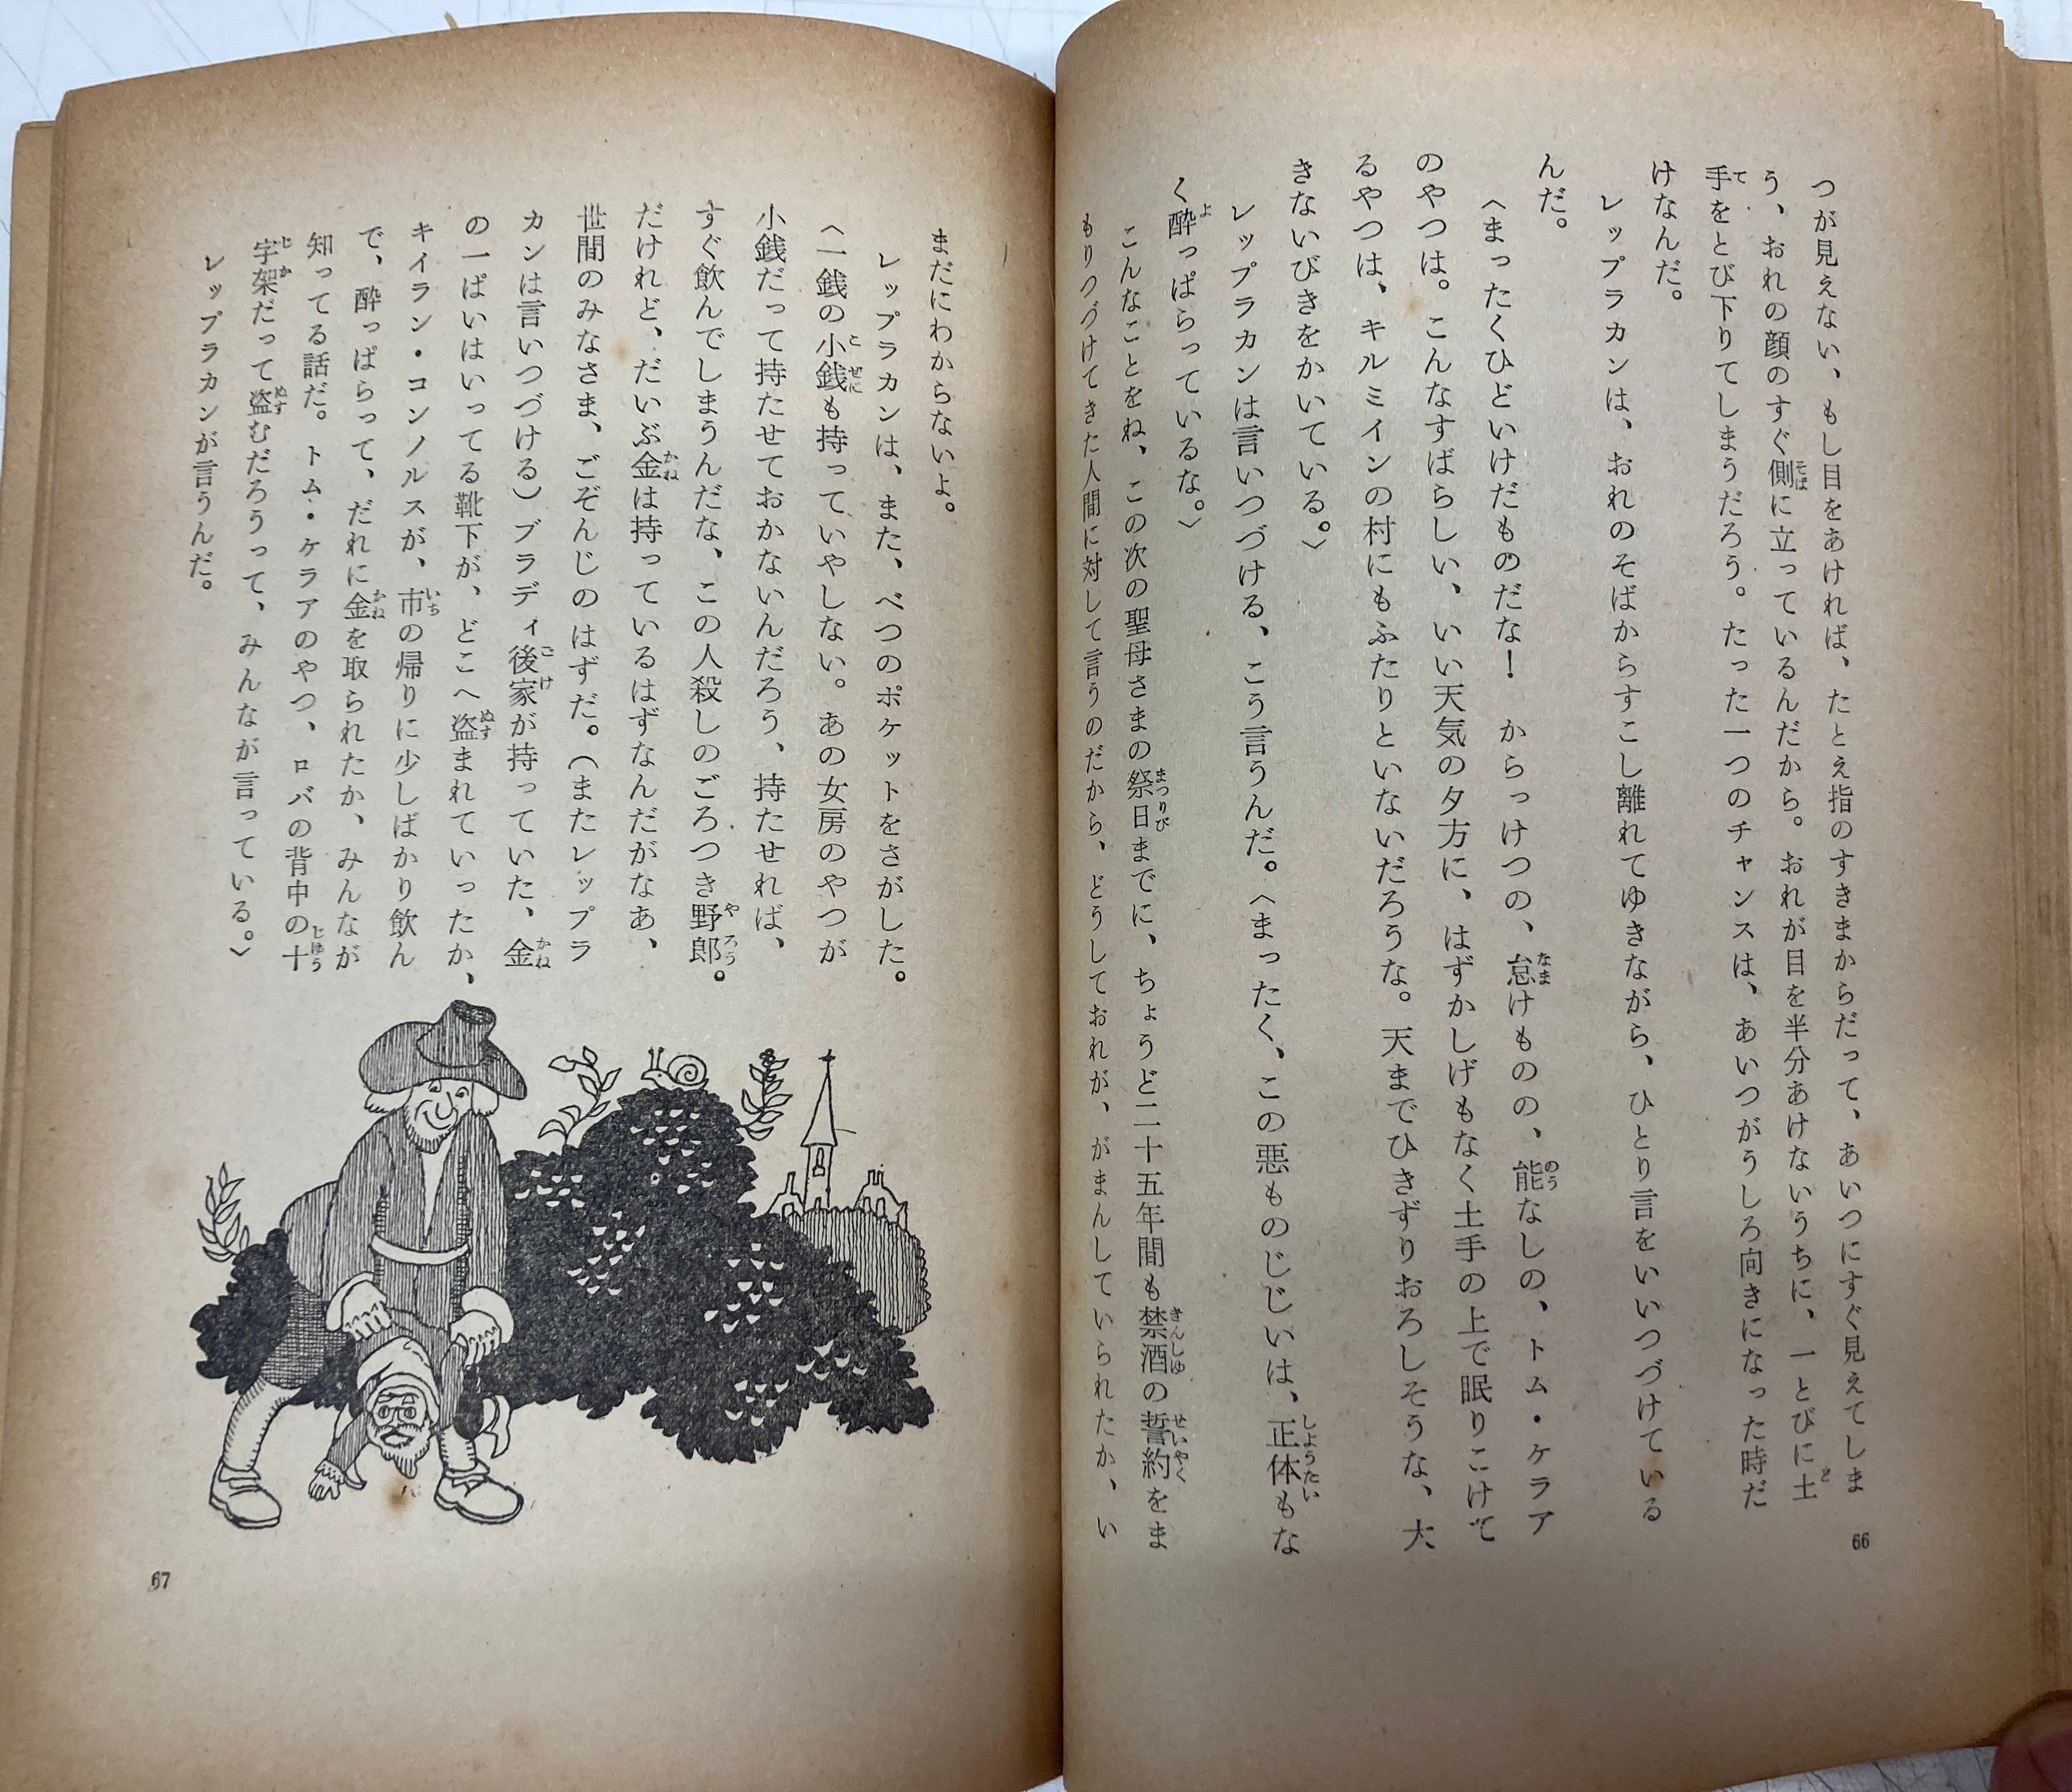 つが見えない、もし目をあければ、たとえ指のすきまからだって、あいつにすぐ見えてしま
う、おれの顔のすぐ側に立っているんだから。おれが目を半分あけないうちに、一とびに土
手をとび下りてしまうだろう。たった一つのチャンスは、あいつがうしろ向きになった時だ
けなんだ。
レップラカンは、おれのそばからすこし離れてゆきながら、ひとり言をいいつづけている
んだ。
〈まったくひどいけだものだな！　からっけつの、怠けものの、能なしの、トム・ケラア
のやつは。こんなすばらしい、いい天気の夕方に、はずかしげもなく土手の上で眠りこけて
るやつは、キルミインの村にもふたりといないだろうな。天までひきずりおろしそうな、大
きないびきをかいている。〉
レップラカンは言いつづける、こう言うんだ。〈まったく、この悪ものじじいは、正体もな
く酔っぱらっているな。〉
こんなことをね、この次の聖母さまの祭日までに、ちょうど二十五年間も禁酒の誓約をま
もりつづけてきた人間に対して言うのだから、どうしておれが、がまんしていられたか、い
66
まだにわからないよ。
レップラカンは、また、べつのポケットをさがした。
〈一銭の小銭も持っていやしない。あの女房のやつが
小銭だって持たせておかないんだろう、持たせれば、
すぐ飲んでしまうんだな、この人殺しのごろつき野郎。
だけれど、だいぶ金は持っているはずなんだがなあ、
世間のみなさま、ごぞんじのはずだ。（またレップラ
カンは言いつづける）ブラディ後家が持っていた、金
の一ぱいはいってる靴下が、どこへ盗まれていったか、
キイラン・コンノルスが、市の帰りに少しばかり飲ん
で、酔っぱらって、だれに金を取られたか、みんなが
知ってる話だ。トム・ケラアのやつ、ロバの背中の十
字架だって盗むだろうって、みんなが言っている。〉
レップラカンが言うんだ。
67